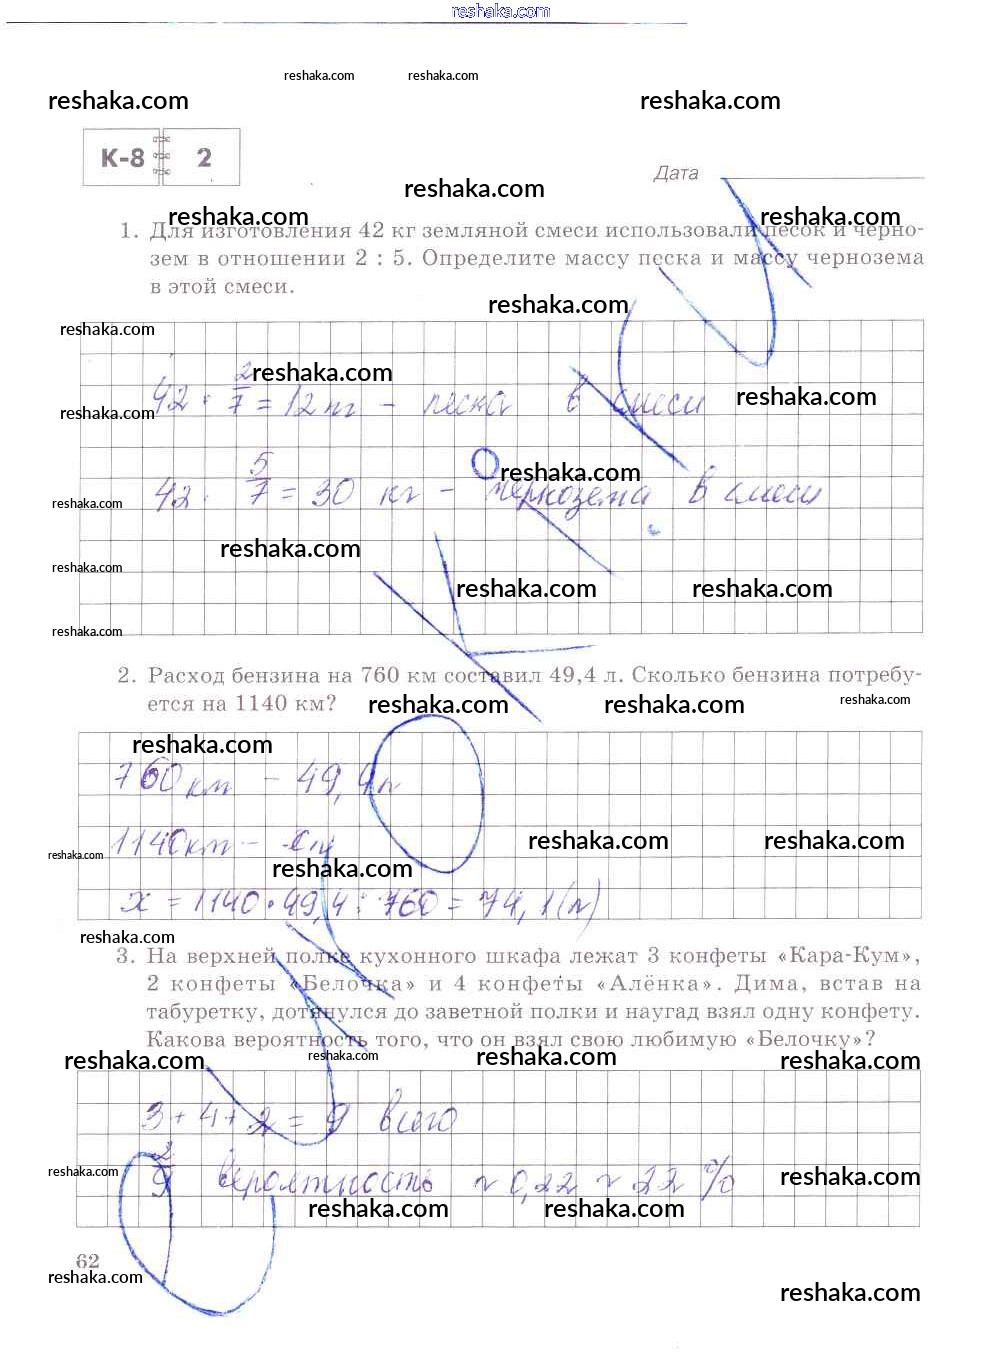 reshaka.com
reshaka.com reshaka.com
reshaka.com reshaka.com
К-8 2
Дата
reshaka.com
reshaka.com reshaka.com
1. Для изготовления 42 кг земляной смеси использовали песок и черно-
зем в отношении 2 : 5. Определите массу песка и массу чернозема
в этой смеси.
reshaka.com
reshaka.com
reshaka.com
42 · 2/7 = 12 кг – песка в смеси
reshaka.com
reshaka.com
reshaka.com
42 · 5/7 = 30 кг – чернозема в смеси
reshaka.com
reshaka.com
reshaka.com
reshaka.com reshaka.com
reshaka.com
2. Расход бензина на 760 км составил 49,4 л. Сколько бензина потребу-
ется на 1140 км?
reshaka.com reshaka.com reshaka.com
reshaka.com
760 км – 49,4 л
1140 км –
reshaka.com reshaka.com
reshaka.com
reshaka.com
x = 1140 · 49,4 : 760 = 74,1 (л)
reshaka.com
3. На верхней полке кухонного шкафа лежат 3 конфеты «Кара-Кум»,
2 конфеты «Белочка» и 4 конфеты «Алёнка». Дима, встав на
табуретку, дотянулся до заветной полки и наугад взял одну конфету.
Какова вероятность того, что он взял свою любимую «Белочку»?
reshaka.com reshaka.com reshaka.com reshaka.com
3 + 4 + 2 = 9 всего
2/9 вероятность ~ 0,22 ~ 22 %
reshaka.com reshaka.com
reshaka.com reshaka.com
62
reshaka.com
reshaka.com